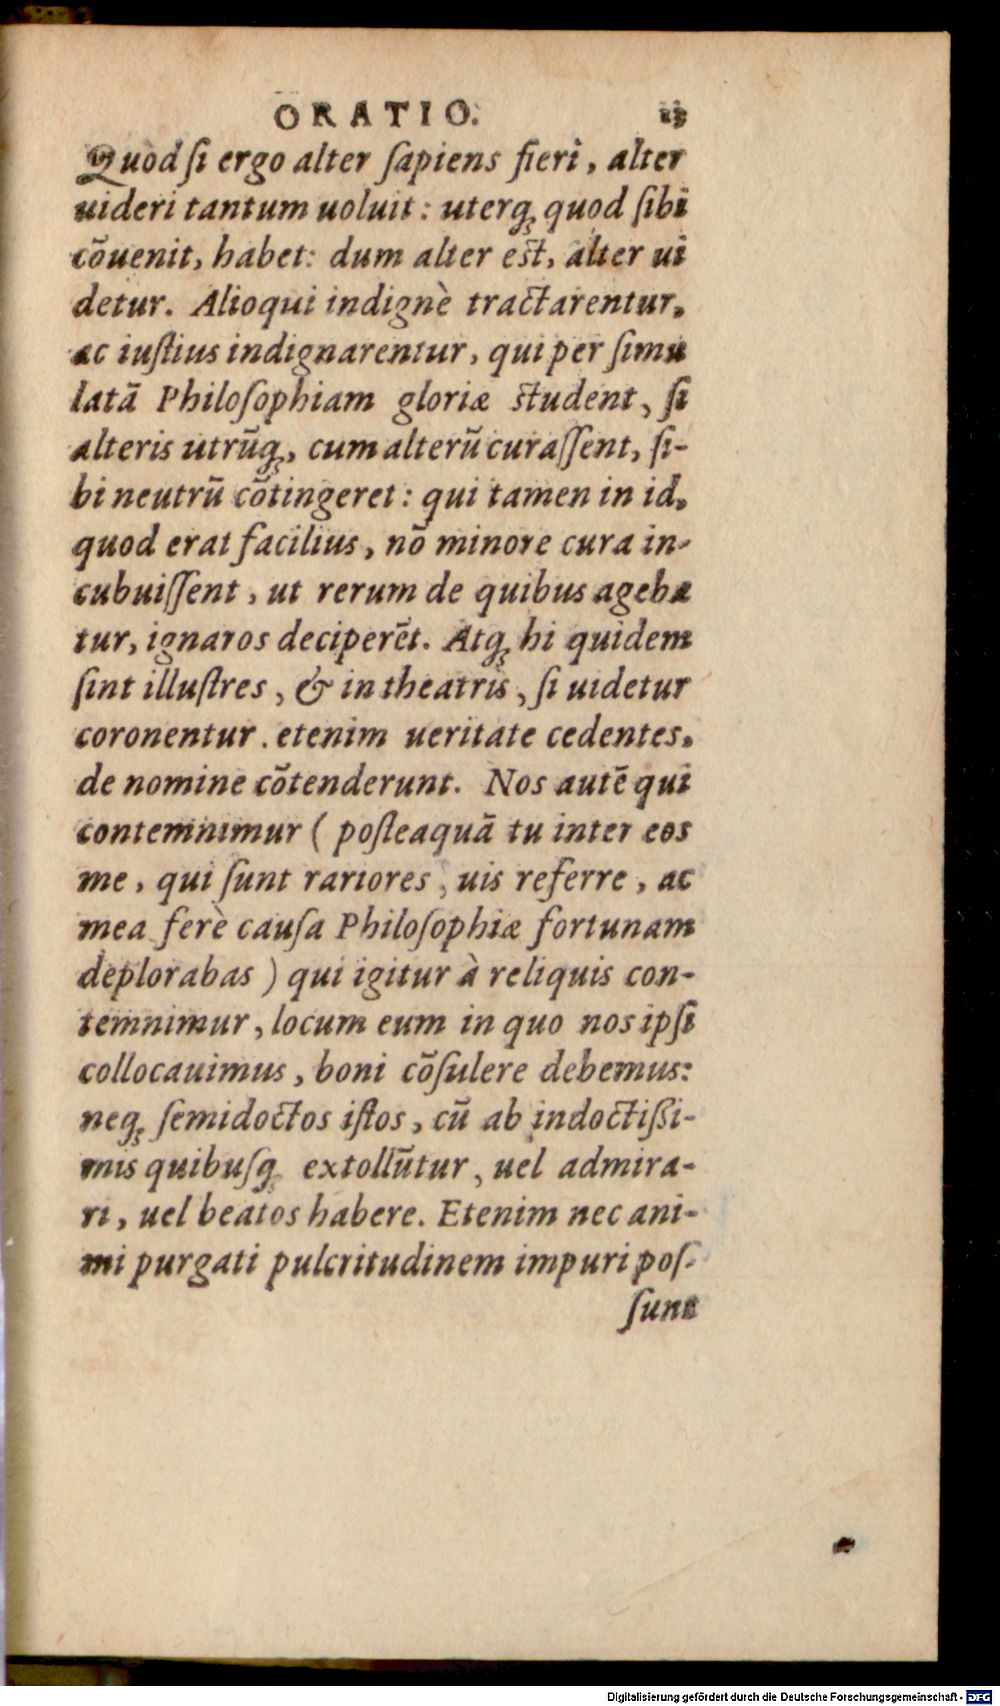 ORATIO.
Quòd ſi ergo alter ſapiens fieri, alter
uideri tantum uoluit: uterq; quod ſibi
cõuenit, habet: dum alter eſt, alter ui
detur. Alioqui indignè tractarentur,
ac iuſtius indignarentur, qui per ſimu
latã Philoſophiam gloriæ ſtudent, ſi
alteris utrũq;, cum alterũ curaſſent, ſi-
bi neutrũ cõtingeret: qui tamen in id,
quod erat facilius, nõ minore cura in-
cubuiſſent, ut rerum de quibus ageba
tur, ignaros deciperẽt. Atq; hi quidem
ſint illuſtres, & in theatris, ſi uidetur
coronentur. etenim ueritate cedentes,
de nomine cõtenderunt. Nos autẽ qui
contemnimur (poſteaquã tu inter eos
me, qui ſunt rariores, uis referre, ac
mea ferè cauſa Philoſophiæ fortunam
deplorabas) qui igitur à reliquis con-
temnimur, locum eum in quo nos ipſi
collocauimus, boni cõſulere debemus:
neq; ſemidoctos iſtos, cũ ab indoctißi-
mis quibuſq; extollũtur, uel admira-
ri, uel beatos habere. Etenim nec ani-
mi purgati pulcritudinem impuri poſ-
ſunt
Digitalisierung gefördert durch die Deutsche Forschungsgemeinschaft - DFG